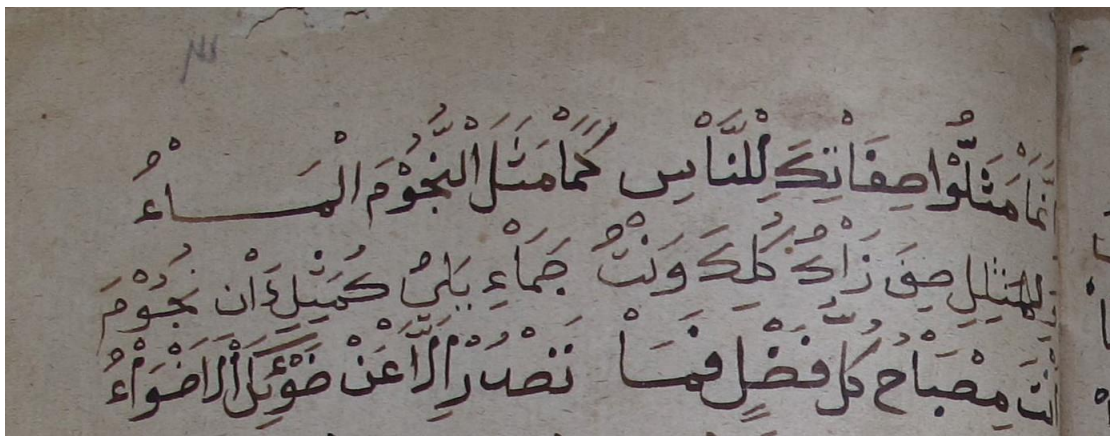 اِنَّمَا مَثَّلُوْا صِفَاتِكَ لِلنَّاسِ كَمَا مَثَلَ النُّجُوْمَ الْمَاءُ
وَلِمِثِلِلِ صِفَ زَاكُ كُلَكَ وَنْتُ جَمَاءِ بَلِيُ كَمِثِلِءَانْ نُجُوْمَ
اَنْتَ مِصْبَاحُ كُلِّ فَضْلٍ فَمَا تَصْدُرُ اِلَّا عَنْ ضَوْئِكَ الْاَضْوَاءُ